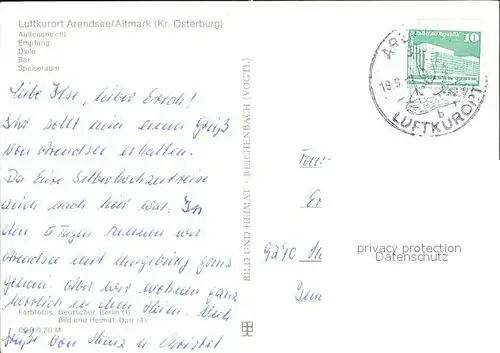 Luftkurort Arendsee/Altmark (Kr. Osterburg)
Außenansicht
Empfang
Diele
Bar
Speiseraum
Liebe Ilse, lieber Erich!
Ihr sollt nun einen Gruß
von Arendsee erhalten.
Da Eure Silberhochzeitsreise
auch nach hier war. In
den 5 Tagen kennen wir
Arendsee mit Umgebung ganz
genau. Aber wir wohnen ganz
herrlich in dem Heim. Viele
Grüße von Heinz u. Christel
Farbfotos: Deutscher, Berlin (1)
Bild und Heimat, Darr (4)
DDR 0,20 M
BILD UND HEIMAT · REICHENBACH (VOGTL)
10
LUFTKURORT
b
Fam
Er
9270
privacy protection
Datenschutz